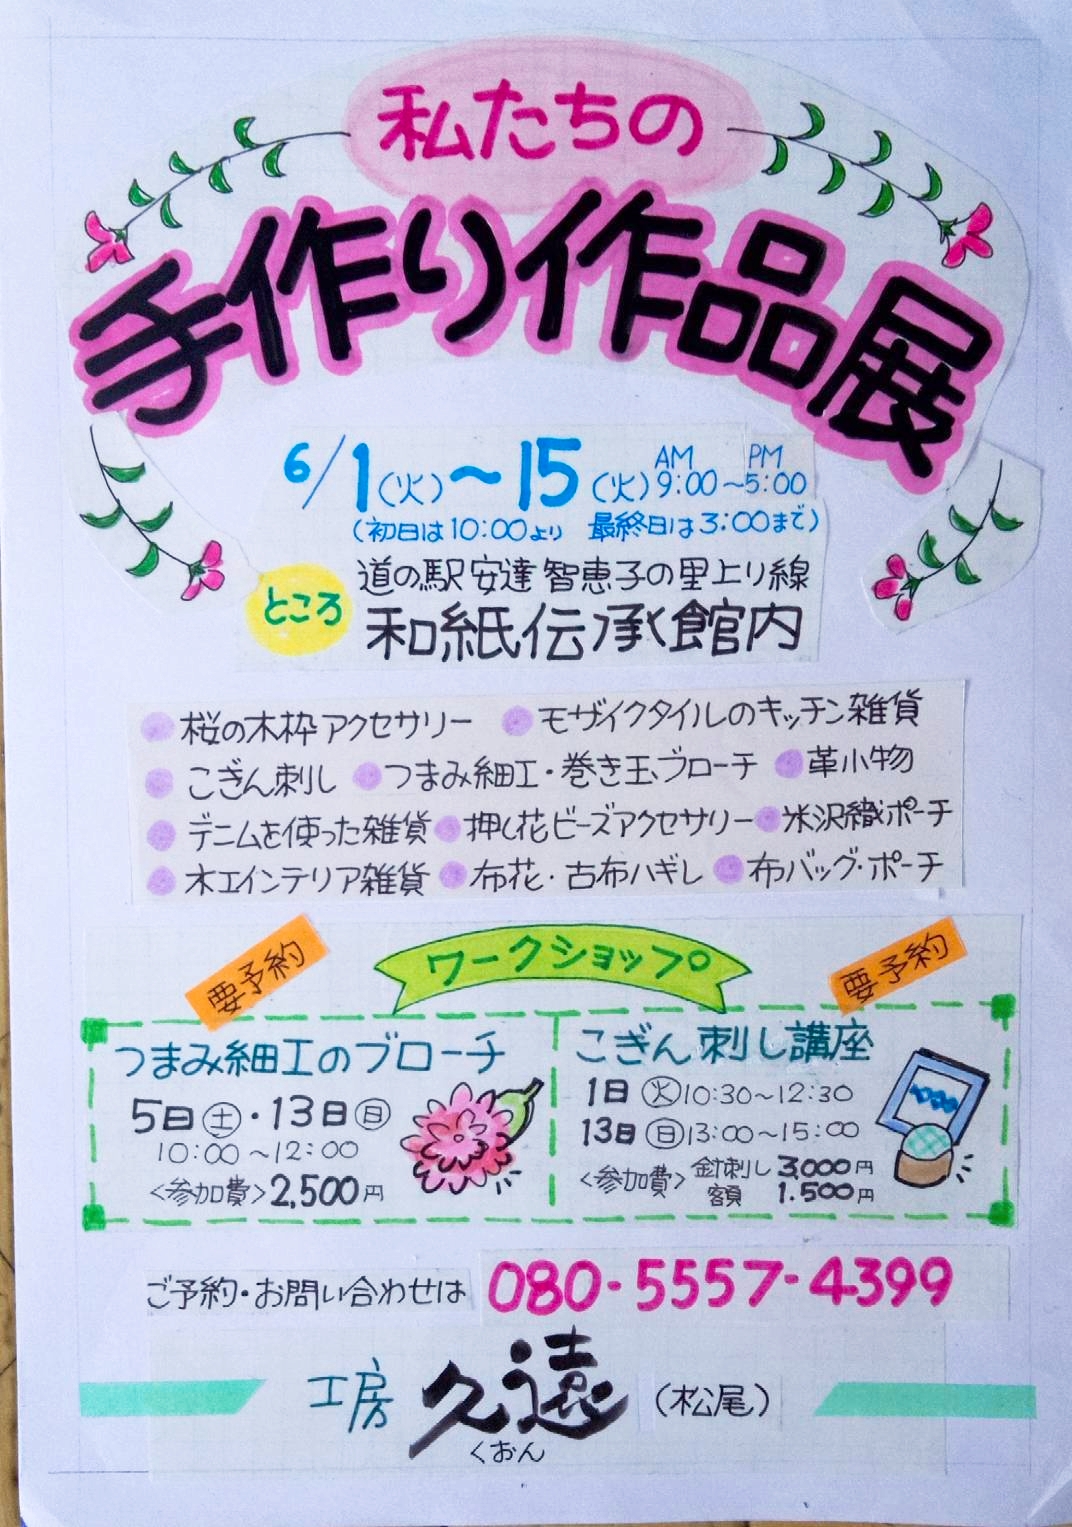 私たちの
手作り作品展
6/1(火)〜15(火) AM 9:00〜PM 5:00
(初日は10:00より 最終日は3:00まで)
ところ 道の駅安達智恵子の里上り線
和紙伝承館内
桜の木枠アクセサリー モザイクタイルのキッチン雑貨
こぎん刺し つまみ細工・巻き玉ブローチ 革小物
デニムを使った雑貨 押し花ビーズアクセサリー 米沢織ポーチ
木工インテリア雑貨 布花・古布ハギレ 布バッグ・ポーチ
要予約 ワークショップ 要予約
つまみ細工のブローチ
5日(土)・13日(日)
10:00〜12:00
<参加費>2,500円
こぎん刺し講座
1日(火)10:30〜12:30
13日(日)13:00〜15:00
<参加費>針刺し 3,000円
額 1.500円
ご予約・お問い合わせは 080-5557-4399
工房 久遠 (松尾)
くおん